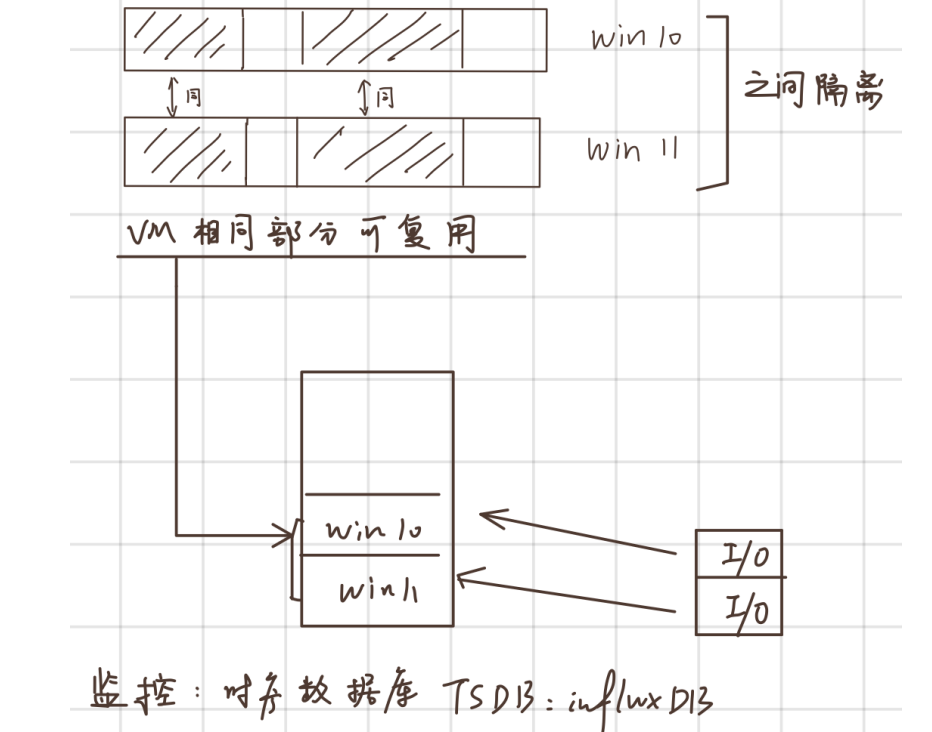 win 10
之间隔离
同 同
win 11
VM 相同部分可复用
win 10
win 11
I/O
I/O
监控：时序数据库 TSDB：influxDB